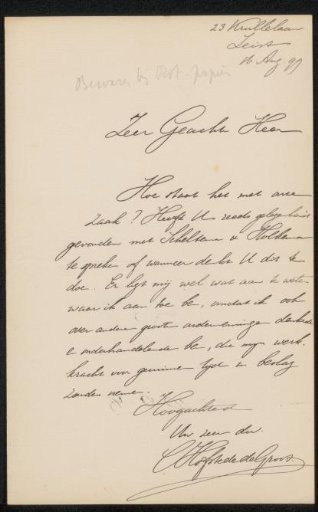 23 Krullelaan
Zeist
16 Aug 97
Bewaren bij Rot-papier
Zeer Geachte Heer
Hoe staat het met onze
zaak? Heeft U reeds gelegenheid
gevonden met Scheltema & Holkema
te spreken of wanneer denkt U dit te
doen. Er ligt mij veel aan te weten
waar ik aan toe ben, omdat ik ook
over andere groote ondernemingen denkende
& onderhandelende ben, die mijn werk-
kracht voor geruimen tijd in beslag
zouden nemen.
Hoogachtend
Uw zeer dw.
C Hofstede de Groot